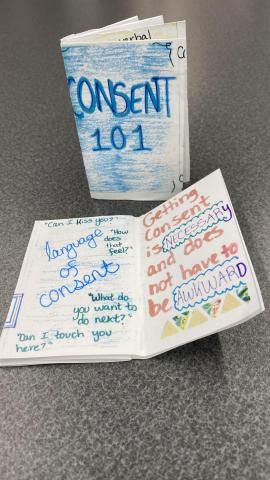 verbal
CONSENT
101
"Can I Kiss you?"
"How
does
that
feel?"
language
of
consent
"What do
you want to
do next?"
"Can I touch you
here?"
Getting
Consent
is NECESSARY
and does
not have to
be AWKWARD